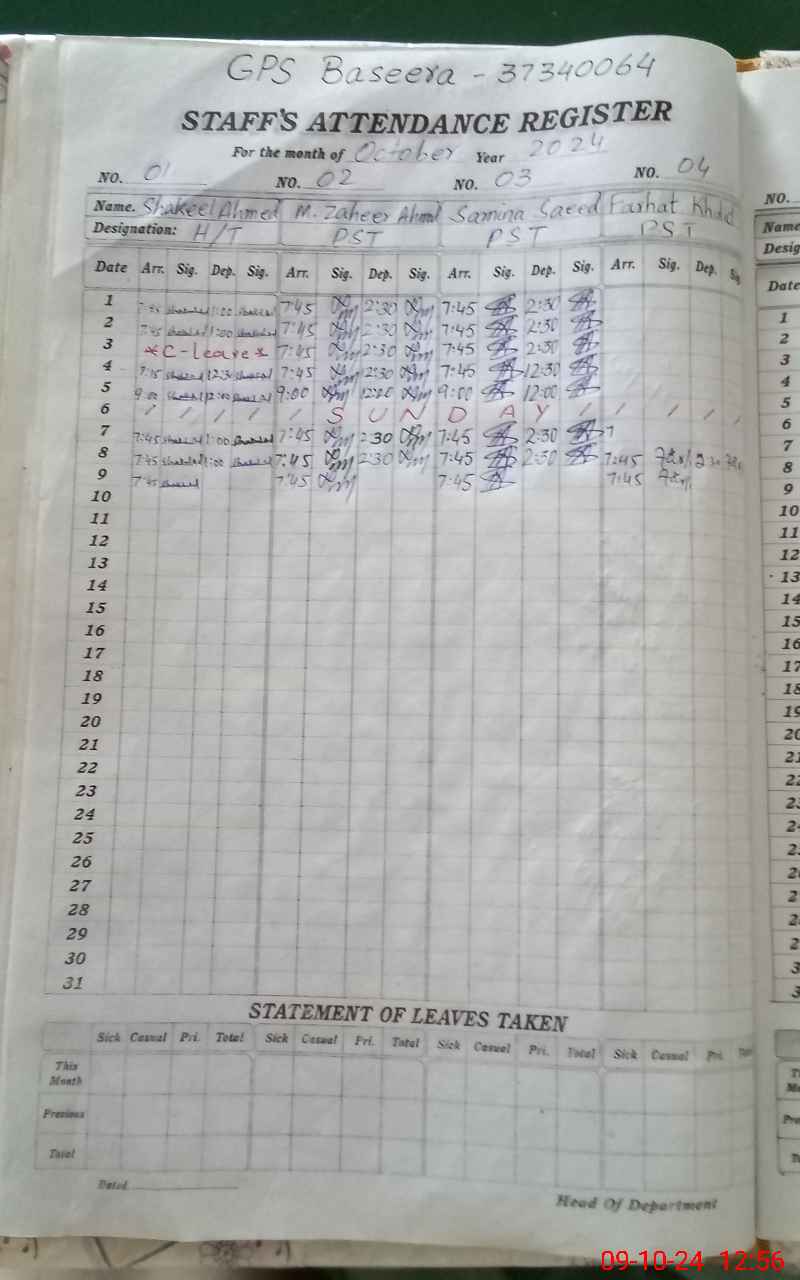 GPS Baseera - 37340064
STAFF'S ATTENDANCE REGISTER
For the month of October Year 2024
NO. 01 NO. 02 NO. 03 NO. 04
Name. Shakeel Ahmed M. Zaheer Ahmd Samina Saeed Farhat Khalid
Designation: H/T PST PST PST
Date Arr. Sig. Dep. Sig. Arr. Sig. Dep. Sig. Arr. Sig. Dep. Sig. Arr. Sig. Dep. Sig
1 7:45 1:00 7:45 2:30 7:45 2:30
2 7:45 1:00 7:45 2:30 7:45 2:30
3 *C-leave* 7:45 2:30 7:45 2:30
4 7:45 2:30 7:45 12:30
5 9:00 12:00 9:00 12:00 9:00 12:00
6 / / / / S U N D A Y / / / / /
7 7:45 1:00 7:45 2:30 7:45 2:30 7
8 7:45 1:00 7:45 2:30 7:45 2:30 7:45
9 7:45 7:45 7:45 7:45
10
11
12
13
14
15
16
17
18
19
20
21
22
23
24
25
26
27
28
29
30
31
STATEMENT OF LEAVES TAKEN
Sick Casual Pri. Total Sick Casual Pri. Total Sick Casual Pri. Total Sick Casual Pri. Total
This Month
Previous
Total
Dated
Head Of Department
NO.
Name
Desig
Date
1
2
3
4
5
6
7
8
9
10
11
12
13
14
15
16
17
18
19
20
21
22
09-10-24 12:56